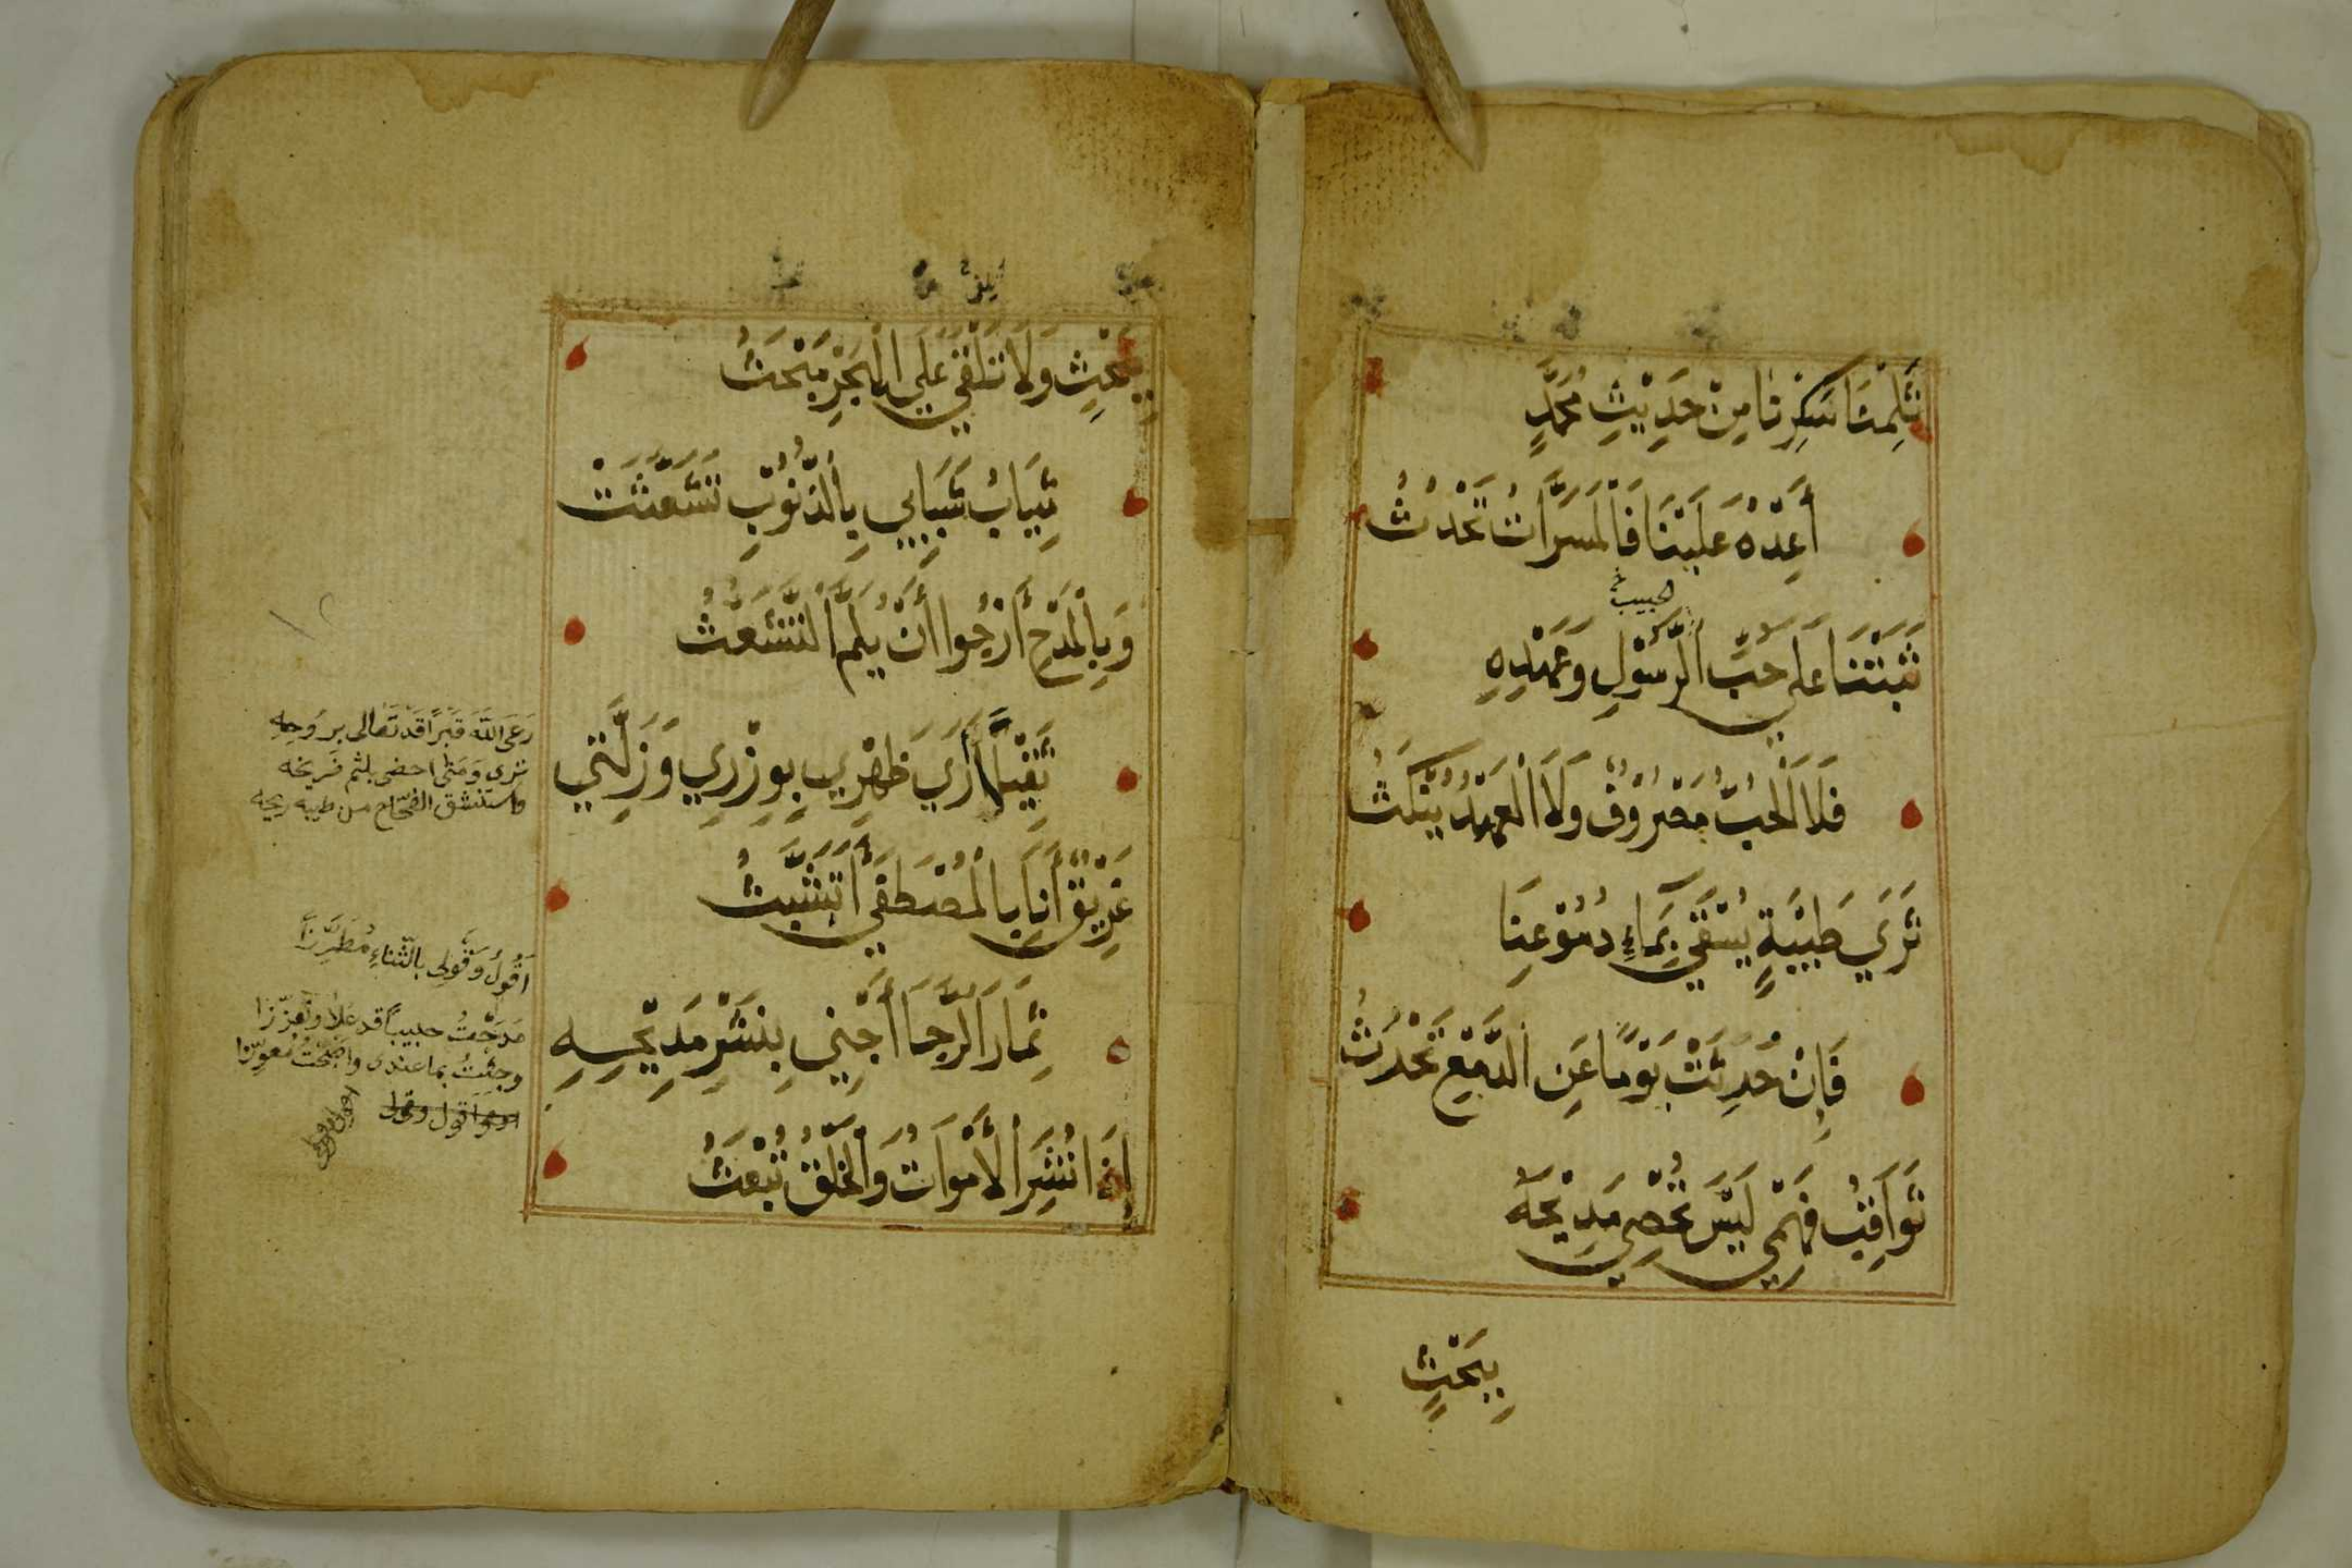 ثَمِلْنَا سَكِرْنَا مِنْ حَدِيْثِ مُحَمَّدٍ
أَعِدْهُ عَلَيْنَا فَالْمَسَرَّاتُ تَحْدُثُ
حبيب
ثَبَتْنَا عَلَى حُبِّ الرَّسُوْلِ وَعَهْدِهِ
فَلَا الْحُبُّ مَصْرُوْفٌ وَلَا الْعَهْدُ يُنْكَثُ
ثَرَي طَيْبَةٍ يُسْقَي بِمَاءِ دُمُوْعِنَا
فَاِنْ حُدِّثَتْ يَوْمًا عَنِ الدَّمْعِ تَحْدُثُ
ثَوَاقِبُ فَهْمِي لَيْسَ تُحْصِي مَدِيْحَهُ
بِبَحْثٍ
بِبَحْثٍ وَلَا تَلْقَي عَلَي الْبَحْرِ مَبْحَثُ
ثِيَابُ شَبَابِي بِالذُّنُوْبِ تَشَعَّثَتْ
وَبِالْمَدْحِ أَرْجُوا أَنْ يُلَمَّ التَّشَعُّثُ
ثَقِيْلًا أَرَي ظَهْرِي بِوِزْرِي وَزَلَّتِي
غَرِيْقٌ أَنَا بِالْمُصْطَفَي أَتَشَبَّثُ
ثِمَارَ الرَّجَا أَجْنِي بِنَشْرِ مَدِيْحِهِ
إِذَا نُشِرَ الْأَمْوَاتُ وَالْخَلْقُ تُبْعَثُ
رَعَى اللّٰهُ قَبْرًا قَدْ تَعَالى بروُحِهِ
ترى وَمَتى احضى بلثم ضَريحه
واستنشق الفحّاح من طيبه ريحه
اَقُولُ وَقَولى بالثّناءِ مُطَرَّزَا
مَدَحْتُ حبيباً قد عَلا وتَعَزّزا
وجئتُ بما عندى واضحتُ مُعوِزا
اقول وقول